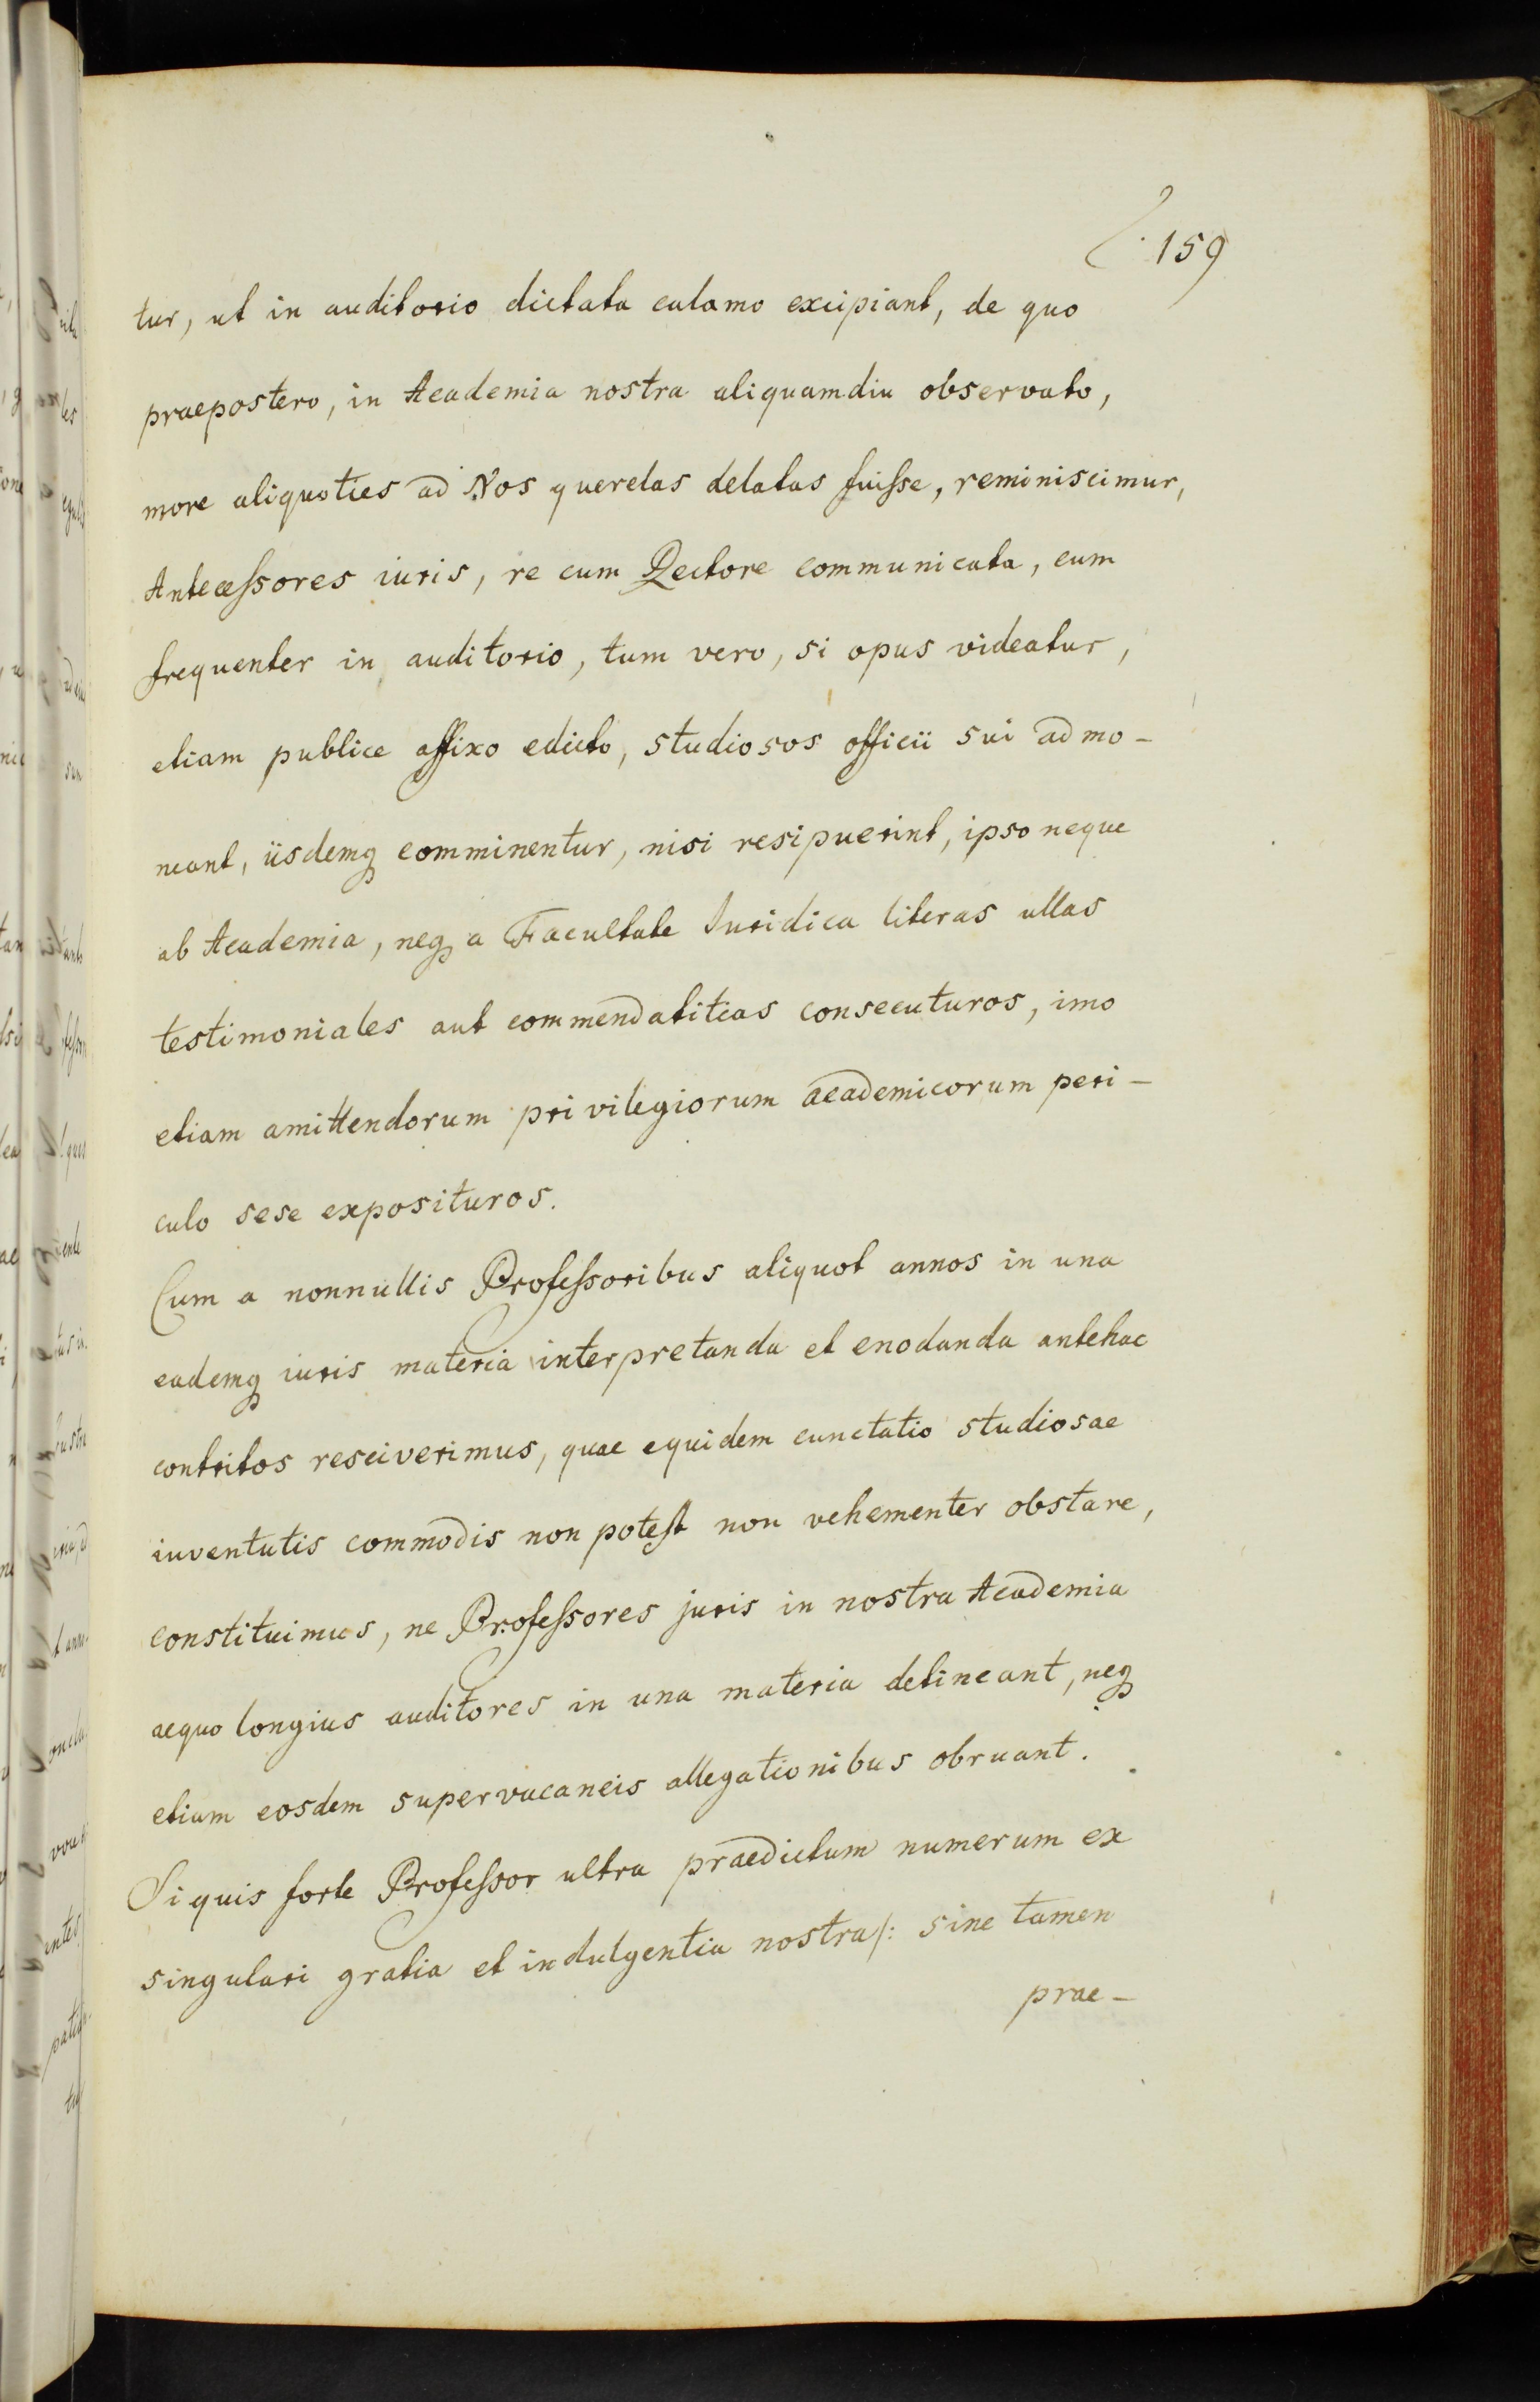 159
tur, ut in auditorio dictata calamo excipiant, de quo
praepostero, in Academia nostra aliquamdiu observato,
more aliquoties ad Nos querelas delatas fuisse, reminiscimur,
Antecessores iuris, re cum Rectore communicata, cum
frequenter in auditorio, tum vero, si opus videatur,
etiam publice affixo edicto, studiosos officii sui admo-
neant, iisdemq comminentur, nisi resipuerint, ipso neque
ab Academia, neq a Facultate Iuridica literas ullas
testimoniales aut commendatitias consecuturos, imo
etiam amittendorum privilegiorum academicorum peri-
culo sese exposituros.
Cum a nonnullis Professoribus aliquot annos in una
eademq iuris materia interpretanda et enodanda antehac
contritos resciverimus, quae equidem cunctatio studiosae
iuventutis commodis non potest non vehementer obstare,
constituimus, ne Professores juris in nostra Academia
aequo longius auditores in una materia detineant, neq
etiam eosdem supervacaneis allegationibus obruant.
Si quis forte Professor ultra praedictum numerum ex
singulari gratia et indulgentia nostra /: sine tamen
prae-